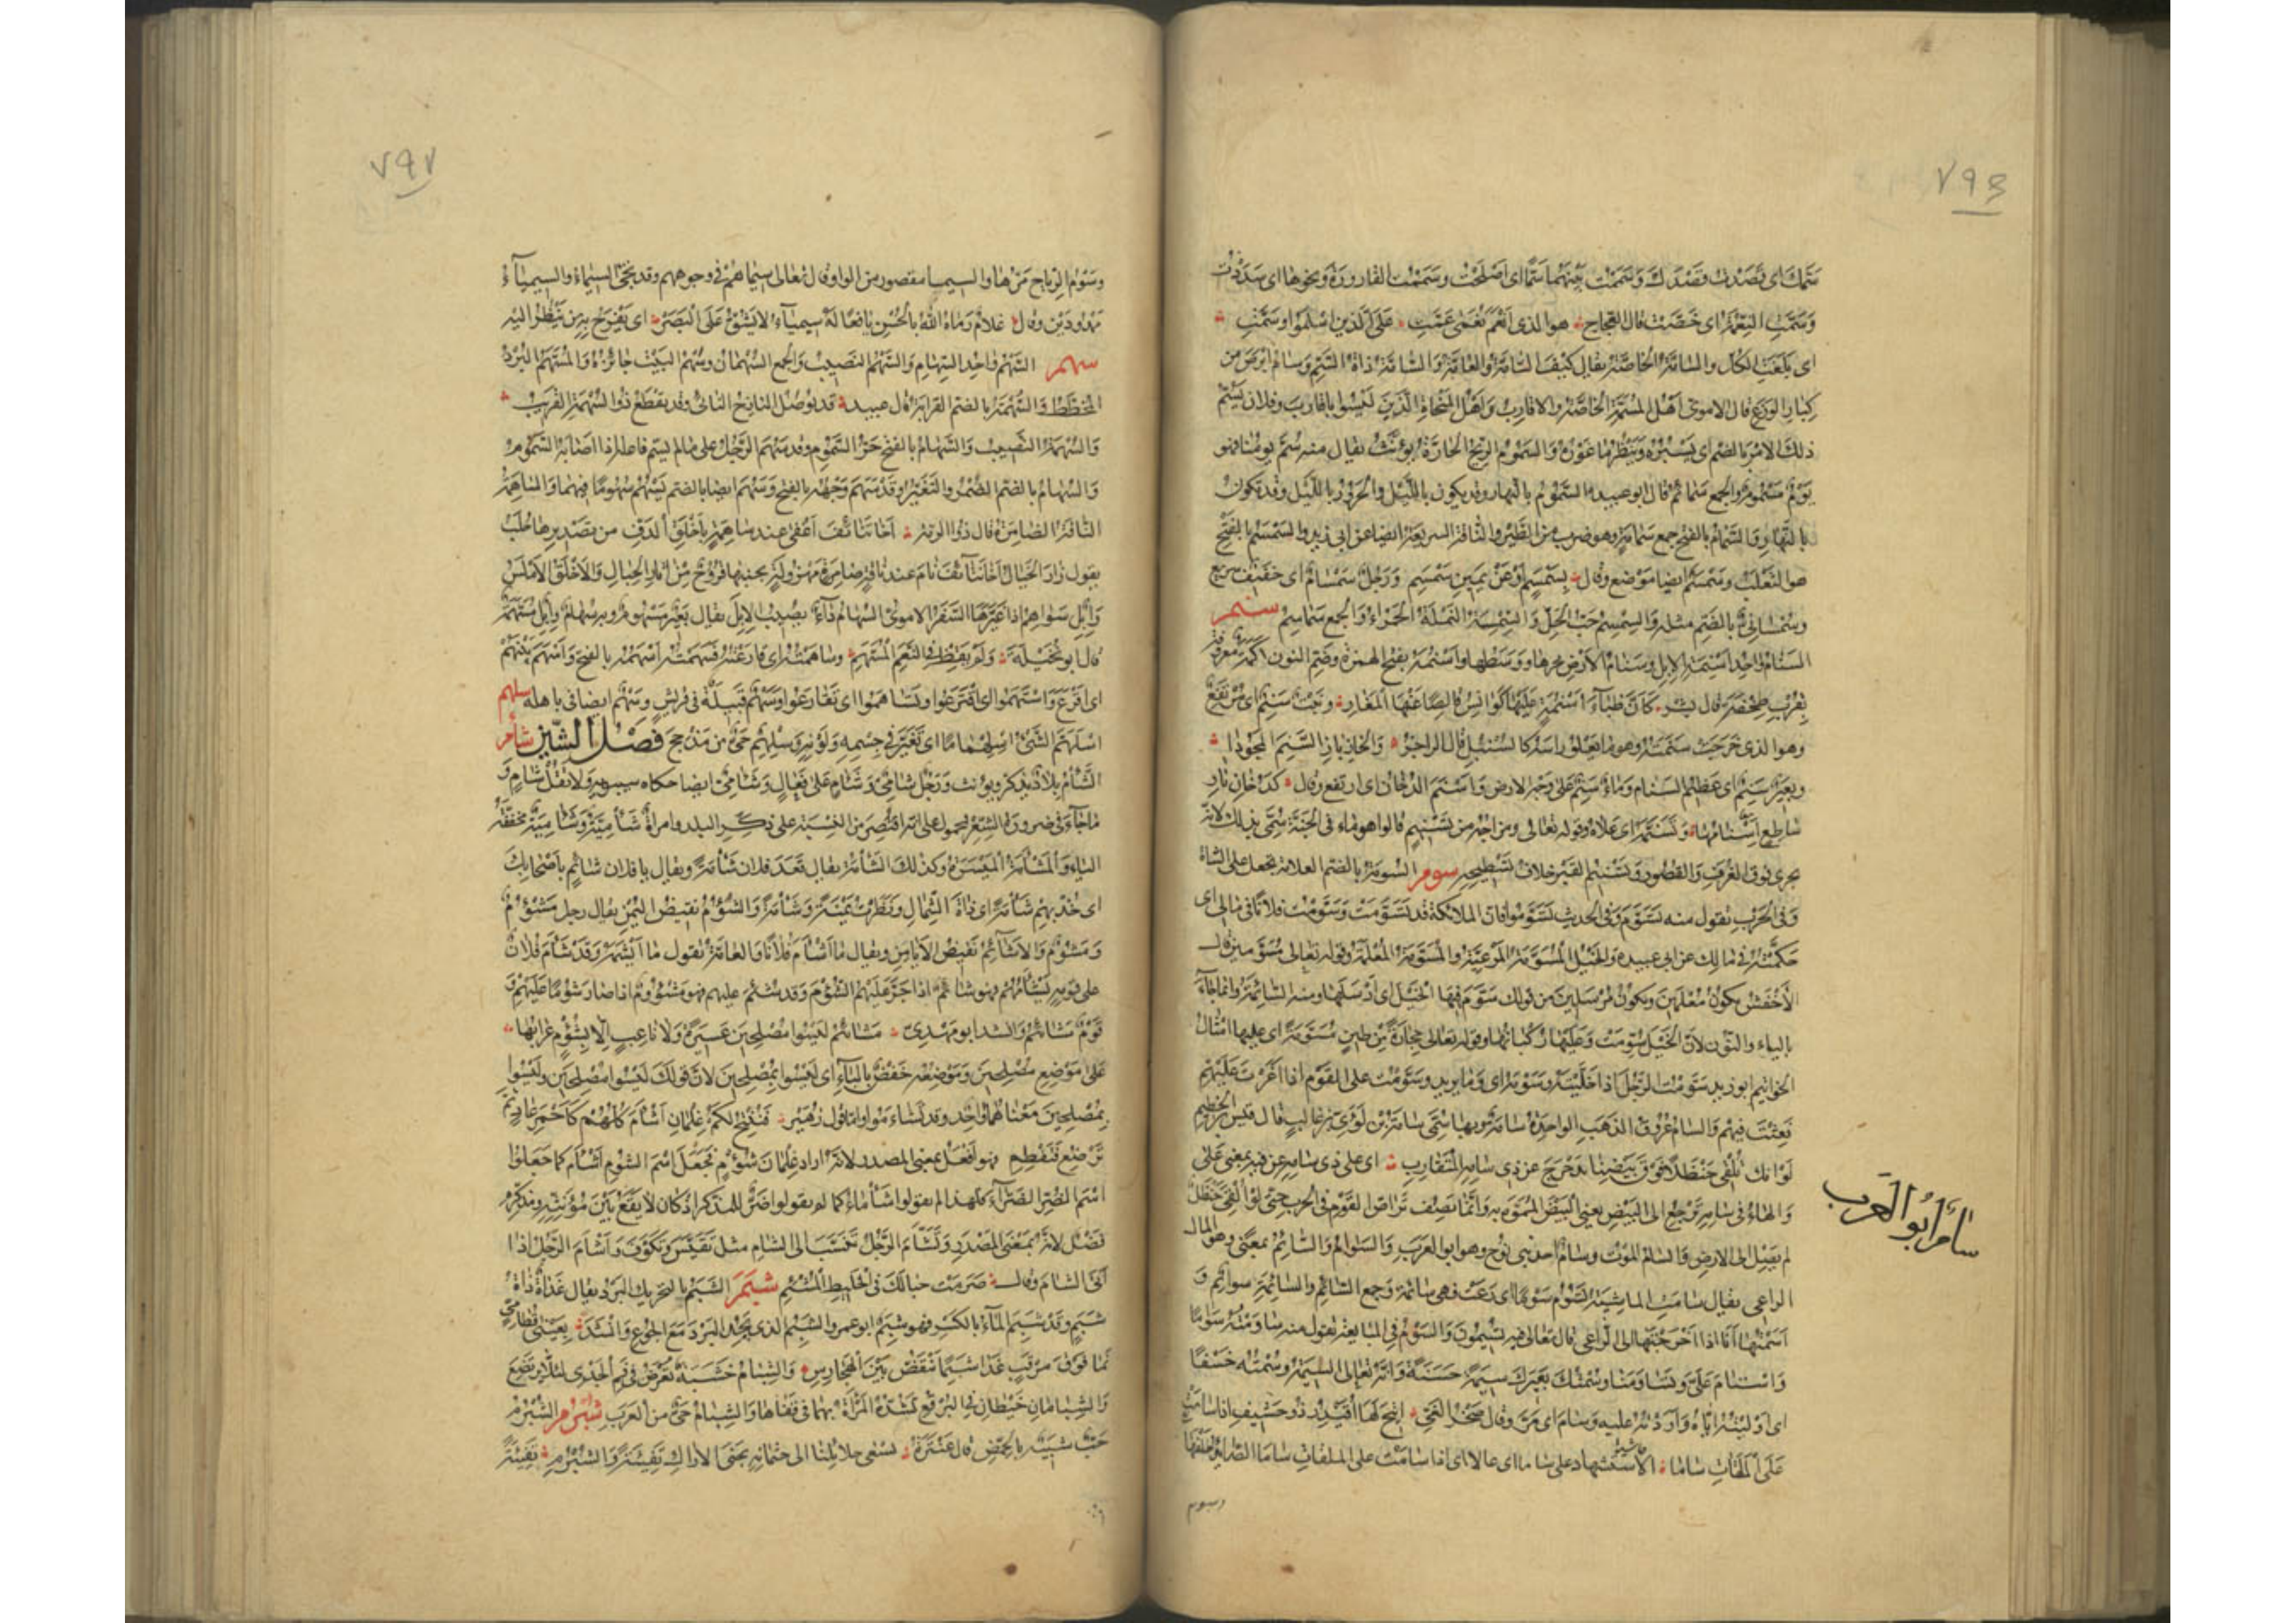 ٧٩٦
سَمَّكَ اى قَصَدْتُ قَصْدَكَ وَسَمَمْتُ بَيْنَهُما سَمًّا اى اَصْلَحْتُ وسَمَمْتُ القارورَةَ ونحوها اى سَدَدْتُ
وَسَمَّتِ النِّعْمَةُ اى خَصَّتْ قال العَجّاج هو الذى اَنْعَمَ نُعْمى عَمَّتِ على الذين اسْلَموا وسَمَّتِ
اى بَلَغَتِ الكُلَّ والسامَّةُ الخاصَّةُ يقال كيْفَ السّامَّةُ والعامَّةُ والسّامَّةُ ذاةُ السَّمِّ وسامُّ ابْرَصَ من
كِبارِ الوَزَغِ قال الاموى اَهْلُ المَسَمَّةِ الخاصَّةُ والاقارِبُ وَاَهْلُ المَنْحاةِ الَّذينَ لَيْسُوا باقارِبَ وفلان يَسُمُّ
ذلكَ الامْرَ بالضم اى يَسْبُرُهُ وَيَنْظُرُ ما غَوْرُهُ والسَّمُومُ الرّيحُ الحارَّةُ يؤنَّثُ يقال منه سُمَّ يومُنا فهو
يَوْمٌ مَسْمُومٌ والجمع سَمائمُ قال ابو عبيدة السَّمومُ بالنهار وقد يكون باللَّيْلِ والحَرورُ باللَّيْل وقد تكون
بالنَّهارِ والسَّمامُ بالفتح جمع سَمامَةٍ وهو ضرب من الطَّيْرِ والناقَةُ السريعَةُ ايضا عن ابى زيد والسَّمْسَمُ بالفتح
هو الثَّعْلَبُ وسَمْسَمٌ ايضا موضع وقال بِسَمْسَمٍ اَوْ عَنْ يَمِينِ سَمْسَمِ وَرَجُلٌ سَمْسامٌ اى خفيفٌ سريع
وسُمْسُمانِىٌّ بالضم مثله وَالسِّمْسِمُ حَبُّ الحَلِّ وَالسِّمْسِمَةُ النَّمْلَةُ الحَمْراءُ وَالجمع سَماسِمُ سنم
السَّنامُ واحِدُ اَسْنِمَةِ الابِلِ وسَنامُ الاَرْضِ نحرها ووَسَطُها واَسْنُمَةُ بفتح الهمزة وضم النون اَكَمَةٌ معروفة
بقُرْبِ طِخْفَةَ قال بشر كَاَنَّ ظِباءَ اَسْنُمَةٍ عَلَيْها كَوانِسُ قالِصًا عَنْها المَغارُ ونَبْتٌ سَنِمٌ اى مُرْتَفِعٌ
وهو الذى خَرَجَتْ سَنَمَتُهُ وهو ما يَعْلو راسَهُ كالسُّنْبُلِ قال الراجز
وبَعيرٌ سَنِمٌ اى عَظيمُ السَّنامِ وَماءٌ سَنِمٌ على وَجْهِ الارضِ وَاَسْنَمَ الدُّخانُ اى ارتفع وقال كدُخانِ نارٍ
ساطِعٍ اِسْنامُها وَتَسَنَّمَهُ اى عَلاهُ وقوله تعالى ومِزاجُهُ من تَسْنيمٍ قالوا هو ماءٌ فى الجَنَّة سُمّى بذلك لانّه
يجرى فوق الغُرَفِ وَالقُصُورِ وَتَسْنيمُ القَبْرِ خلافُ تَسْطيحِه سوم السُّومَةُ بالضم العلامة تجعل على الشاة
وَفى الحَرْبِ تقول منه تَسَوَّمَ وفى الحديث تَسَوَّمُوا فانّ الملائكةَ قد تَسَوَّمَتْ وَسَوَّمْتُ فلانًا فى مالى اى
حَكَّمْتُهُ فى مالك عن ابى عبيدة وَالخَيْلُ المُسَوَّمَةُ المَرْعِيَّةُ والمُسَوَّمَةُ المُعْلَمَةُ وقوله تعالى مُسَوَّمين قال
الاَخْفَشُ يكونُ مُعْلَمينَ ويكونُ مُرْسَلينَ من قولك سَوَّمَ فيها الخَيْلَ اى اَرْسَلَها ومنه السّائِمَةُ وانما جاءَ
بالياء والنّون لانّ الخَيْلَ سُوِّمَتْ وَعَلَيْها رُكْبانُها وقوله تعالى حِجارَةً مِنْ طينٍ مُسَوَّمَةً اى عليها امْثالُ
الخَواتيم ابو زيد سَوَّمْتُ الرَّجُلَ اذا خَلَّيْتَهُ وسَوْمَهُ اى وَما يريد وسَوَّمْتُ على القَوْمِ اذا اَغَرْتَ عَلَيْهِمْ
فَعِثْتَ فيهِمْ وَالسّامُ عُروقُ الذَّهَبِ الواحِدَةُ سامَةٌ وبها سُمّى سامَةُ بْنُ لُؤَىِّ بْنِ غالِبٍ قال قيس بن الخطيم
لَوَ انّك تُلْقى حَنْظَلاً فَوْقَ بَيْضِنا تَدَحْرَجَ عن ذى سامِهِ المُتَقارِبِ اى على ذى سامِهِ عن فيه بمعنى عَلى
وَالهاءُ فى سامِهِ تَرْجِعُ الى البَيْضِ يعنى البَيْضَ المُمَوَّهَ بِهِ وَانَّما يَصِفُ تَراصَّ القَوْمِ فى الحرب حتى لو اُلْقِىَ حَنْظَلٌ
لم يَصِلْ الى الارضِ وَالسّامُ المَوْتُ وسامٌ احد بنى نوح وهو ابو العَرَبِ وَالسَّوامُ وَالسّائِمُ بمعنًى وهو المال
الراعى يقال سامَتِ الماشِيَةُ تَسُومُ سَوْمًا اى رَعَتْ فهى سائمة وجمع السّائِمِ والسائِمَةِ سوائم وَ
اَسَمْتُها اَنَا اذا اَخْرَجْتَها الى الرَّعى قال تعالى فيه تُسيمُونَ وَالسَّوْمُ فى المُبايَعَةِ تقول منه ساوَمْتُهُ سُوامًا
وَاسْتامَ عَلَىَّ وتَساوَمْنا وسُمْتُكَ بَعيرَكَ سِيمَةً حَسَنَةً وَانَّهُ لغالى السِّيمَةِ وسُمْتُه خَسْفًا
اى اَوْلَيْتُهُ ايّاهُ وَاَوْرَدْتُه عليه وسَامَ اى مَرَّ وقال صَخْرُ الغَىِّ اُتيحَ لَها اُقَيْدِرُ ذو حَشيفٍ اذا سامَتْ
عَلَى المَلَقاتِ ساما الاستشهاد على
سام ابو العرب
وسوم
٧٩٧
وسَوْمُ الرِّياحِ مَرُّها والسيما مقصور من الواو قال تعالى سيماهُمْ فى وجوههم وقد يجئ السِّيماءُ والسيمياءُ
مَمْدودَيْن وقال غلامٌ رَماهُ اللهُ بالحُسْنِ يافِعًا لَهُ سيمياءُ لا تَشُقُّ عَلَى البَصَرْ اى يَفْرَحُ به من يَنْظُرُ اليه
سهم السَّهْمُ واحِدُ السِّهامِ وَالسَّهْمُ النَّصيبُ والجمع السُّهْمانُ وسَهْمُ البَيْتِ جائِزُهُ وَالمُسَهَّمُ البُرْدُ
المُخَطَّطُ وَالسُّهْمَةُ بالضم القرابَةُ قال عبيد قد يوصَلُ النازِحُ النائى وقد يُقْطَعُ ذو السُّهْمَةِ القَريبُ
وَالسُّهْمَةُ النَّصيبُ وَالسَّهامُ بالفتح حَرُّ السَّمُومِ وقد سُهِمَ الرَّجُلُ على ما لم يسمّ فاعله اذا اَصابَهُ السَّمُومُ
وَالسُّهامُ بالضم الضُّمْرُ والتَّغَيُّرُ وقد سَهَمَ وَجْهُهُ بالفتح وَسَهُمَ ايضا بالضم يَسْهُمُ سُهُومًا فيهما وَالسّاهِمَةُ
النّاقَةُ الضّامِرَةُ قال ذُو الرمّة اَخا تَنائِفَ اَغْفى عند ساهِمَةٍ بِاَخْلَقِ الدَّفِّ من تَصْديرِها جُلَبُ
يقول زارَ الخَيالُ اَخا تَنائِفَ نامَ عند ناقةٍ ضامرة مَهْزُولَةٍ بجنبها قروحٌ مِنْ آثارِ الحِبالِ وَالاَخْلَقُ الاَمْلَسُ
وَابِلٌ سَواهِمُ اذا غَيَّرَها السَّفَرُ الاموىّ السُّهامُ داءٌ يُصيبُ الابِلَ يقال بَعيرٌ مَسْهُومٌ وبه سُهامٌ وَابِلٌ مُسَهَّمَةٌ
قال ابو نُخَيْلَةَ وَلَمْ يَقِظْ فى النَّعَمِ المُسَهَّمِ وساهَمْتُهُ اى قارَعْتُهُ فَسَهَمْتُهُ اَسْهَمُهُ بالفتح وَاَسْهَمَ بَيْنَهُمْ
اى اَقْرَعَ وَاسْتَهَمُوا اى اقْتَرَعُوا وتَساهَمُوا اى تَقارَعُوا وسَهْمٌ قَبيلَةٌ فى قُرَيْشٍ وسَهْمٌ ايضا فى باهلة سلهم
اسْلَهَمَّ الشَّىْءُ اسْلِهْمامًا اى تَغَيَّرَ فى جِسْمِهِ وَلَوْنِهِ وسِلْهِمُ حَىٌّ من مَذْحِجَ فَصْلُ الشّين شأم
الشَّأْمُ بِلادٌ يُذَكَّرُ ويؤنث وَرَجُلٌ شامِىٌّ وَشَآمٍ على فَعالٍ وَشَآمِىٌّ ايضا حكاه سيبويه وَلا تَقُلْ شَأْمٌ وَ
ماجاءَ فى ضرورة الشِّعْرِ فمحمول على انّه اقتصر من النِّسْبَةِ على ذِكْرِ البلد وامرأةٌ شَأْمِيَّةٌ وَشَآمِيَةٌ مخفّفة
الياءِ وَالمَشْأَمَةُ المَيْسَرَةُ وكذلك الشَّأْمَةُ يقال قَعَدَ فلان شَأْمَةً ويقال يا فلان شائِمْ بِاَصْحابِكَ
اى خُذْ بِهِمْ شَأْمَةً اى ذاةَ الشِّمالِ وَنَظَرْتُ يَمْنَةً وَشَأْمَةً وَالشُّؤْمُ نقيضُ اليُمْنِ يقال رجل مَشُومٌ
وَمَشْؤُمٌ وَالاَشائِمُ نقيضُ الاَيامِنِ ويقال ما اَشْأَمَ فلانًا وَالعامَّةُ تقول ما اَيْشَمَهُ وَقَدْ شَأَمَ فُلانٌ
على قَوْمِهِ يَشْأَمُهُمْ فهو شائِمٌ اذا جَرَّ عَلَيْهِمُ الشُّؤْمَ وَقد شُئِمَ عليهم فهو مَشْؤُومٌ اذا صارَ شُؤْمًا عَلَيْهِمْ وَ
قَوْمٌ مَشائيمُ وانشد ابو مهدىّ مَشائيمُ لَيْسُوا مُصْلِحينَ عَشيرَةً وَلا ناعِبٍ الّا بِشُؤْمٍ غُرابُها
عَلى مَوْضِعِ مُصْلِحينَ وَمَوْضِعُهُ خَفْضٌ بِالباءِ اى لَيْسُوا بِمُصْلِحينَ لانّ قولَكَ لَيْسُوا مُصْلِحينَ ولَيْسُوا
بِمُصْلِحينَ مَعْناهُما واحِد وقد تَشاءَمُوا وامّا قول زُهَيْر فَتُنْتَجْ لَكُمْ غِلْمانَ اَشْأَمَ كُلُّهُمْ كَاَحْمَرِ عادٍ ثمّ
تُرْضِعْ فَتَفْطِمِ فهو اَفْعَلُ بمعنى المصدر لانّه اراد غِلْمانَ شُؤْمٍ فَجَعَلَ اسْمَ الشؤم اَشْأَمَ كما جَعَلُوا
اسْمَ الضُّرِّ الضَّرّاءَ فلهذا لم يقولوا شَأْماءُ كما لم يقولوا اَضَرُّ للمذكر اذ كان لا يَقَعُ بَيْنَ مُؤَنَّثِهِ ومذكّرِه
فَصْلٌ لانّه بمَعْنى المَصْدَرِ وَتَشَأَّمَ الرَّجُلُ تَنَسَّبَ الى الشام مثل تَقَيَّسَ وَتَكَوَّفَ وَاَشْأَمَ الرَّجُلُ اذا
اَتَى الشام وقال صَرَمَتْ حبالَكَ فى الخَليطِ المُشْئِمِ شبم الشَّبَمُ بالتحريك البَرْدُ يقال غَداةٌ ذاةُ
شَبَمٍ وَقَدْ شَبِمَ الماءُ بالكسر فهو شَبِمٌ ابو عمرو الشَّبِمُ الذى يَجِدُ البَرْدَ مَعَ الجُوعِ وَانشد بِعَيْنَىْ قُطامىٍّ
نَما فَوْقَ مَرْقَبٍ غَدا شَبِمًا يَنْقَضُّ بَيْنَ الهَجارِسِ وَالشِّبامُ خَشَبَةٌ تُعَرَّضُ فى فَمِ الجَدْىِ لئلّا يَرْتَضِعَ
وَالشِّبامانِ خَيْطانِ فى البُرْقُعِ تَشُدُّهُ المَرْأَةُ بهما فى قَفاها وَالشِّبامُ حَىٌّ من العَرَبِ شبرم الشُّبْرُمُ
حَبٌّ شبيهٌ بالحِمَّصِ قال عَنْتَرَةُ تسعى حلائِلُنا الى جُثْمانِهِ بجَنَى الاراكِ تَفِيئَةً وَالشُّبْرُمِ تَفِيئَةً